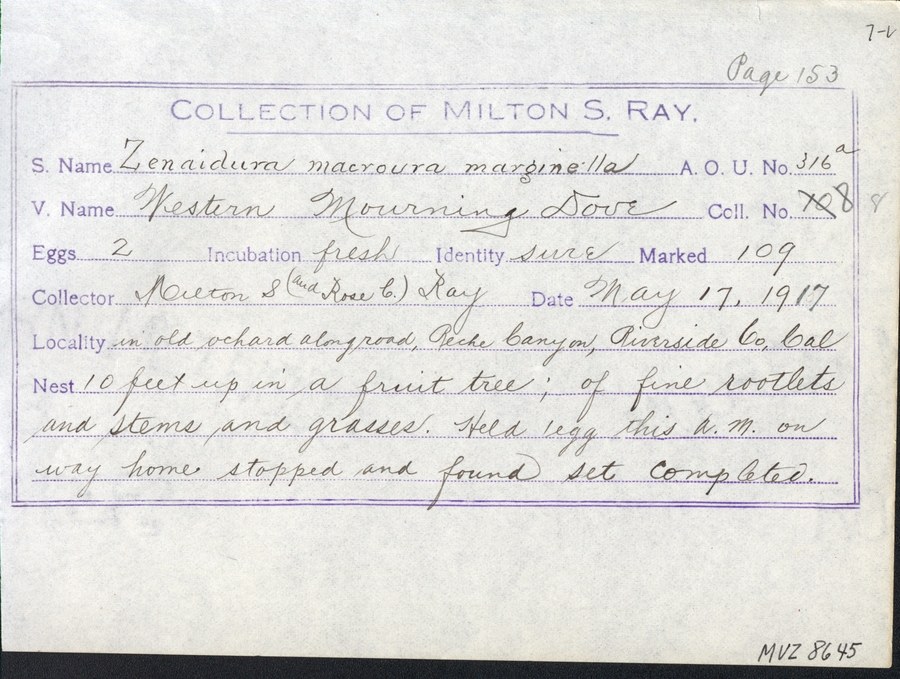 7-v
Page 153
COLLECTION OF MILTON S. RAY.
S. Name Zenaidura macroura marginella A. O. U. No. 316a
V. Name Western Mourning Dove Coll. No. 108 8
Eggs 2 Incubation fresh Identity sure Marked 109
Collector Milton S (and Rose C.) Ray Date May 17, 1917
Locality in old ochard along road, Reche Canyon, Riverside Co, Cal
Nest 10 feet up in a fruit tree; of fine rootlets
and stems and grasses. Held 1 egg this A.M. on
way home stopped and found set completed.
MVZ 8645